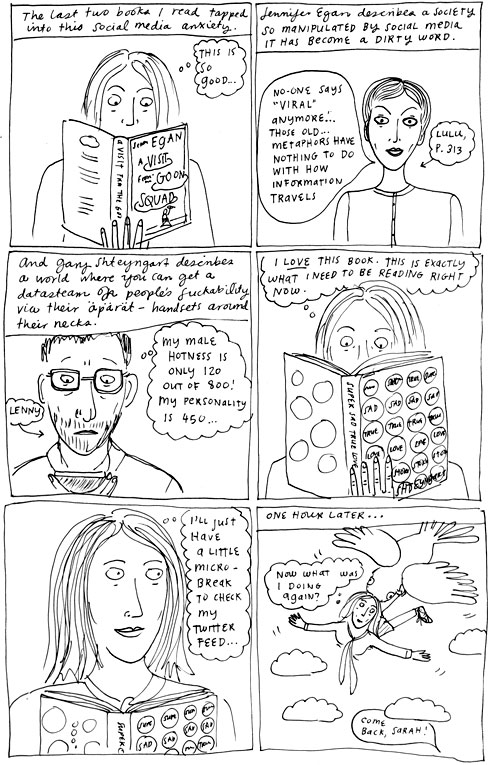 The last two books I read tapped
into this social media anxiety.
THIS IS
SO
GOOD...
A VISIT FROM THE GOO
Jenn EGAN
A VISIT
From the GOON
SQUAD
Jennifer Egan describes a SOCIETY
SO MANIPULATED BY SOCIAL MEDIA
IT HAS BECOME A DIRTY WORD.
NO-ONE SAYS
"VIRAL"
ANYMORE!..
THOSE OLD...
METAPHORS HAVE
NOTHING TO DO
WITH HOW
INFORMATION
TRAVELS
LULU,
P. 313
And Gary Shteyngart describes
a world where you can get a
datasteam of people's fuckability
via their äpärät - handsets around
their necks.
MY MALE
HOTNESS IS
ONLY 120
OUT OF 800!
MY PERSONALITY
IS 450...
LENNY
I LOVE THIS BOOK. THIS IS EXACTLY
WHAT I NEED TO BE READING RIGHT
NOW.
SUPER SAD TRUE LOVE
SAD TRUE
SAD SAD SAD SAD
TRUE TRUE TRUE TRUE
LOVE LOVE LOVE LOVE
SHTEYNGART
I'LL JUST
HAVE
A LITTLE
MICRO-
BREAK
TO CHECK
MY
TWITTER
FEED...
SUPER
SUPE SUPE SUP
SAD SAD SAD SAD
TRUE
ONE HOUR LATER...
NOW WHAT WAS
I DOING
AGAIN?
COME
BACK, SARAH!